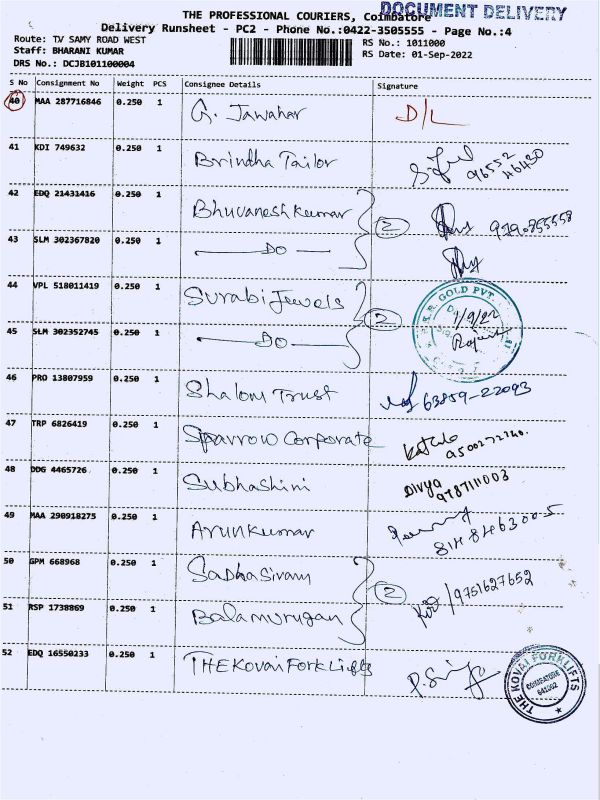 DOCUMENT DELIVERY
THE PROFESSIONAL COURIERS, Coimbatore
Delivery Runsheet - PC2 - Phone No.:0422-3505555 - Page No.:4
Route: TV SAMY ROAD WEST
RS No.: 1011000
Staff: BHARANI KUMAR
RS Date: 01-Sep-2022
DRS No.: DCJB101100004
S No Consignment No Weight PCS Consignee Details Signature
40 MAA 287716846 0.250 1 G. Jawahar D/L
41 KDI 749632 0.250 1 Brindha Tailor 96552 46430
42 EDQ 21431416 0.250 1 Bhuvaneshkumar 2
43 SLM 302367820 0.250 1 — DO —
44 VPL 518011419 0.250 1 Surabi Jewels 2 GOLD PVT. 1/9/22
45 SLM 302352745 0.250 1 — DO —
46 PRO 13807959 0.250 1 Shalom Trust 63859-22093
47 TRP 6826419 0.250 1 Sparrow Corporate
48 DDG 4465726 0.250 1 Subhashini Divya 9787111003
49 MAA 290918275 0.250 1 Arunkumar
50 GPM 668968 0.250 1 Sadhasivam 2 9751627652
51 RSP 1738869 0.250 1 Balamurugan
52 EDQ 16550233 0.250 1 THE Kovai Fork Lifts
THE KOVAI FORKLIFTS
COIMBATORE